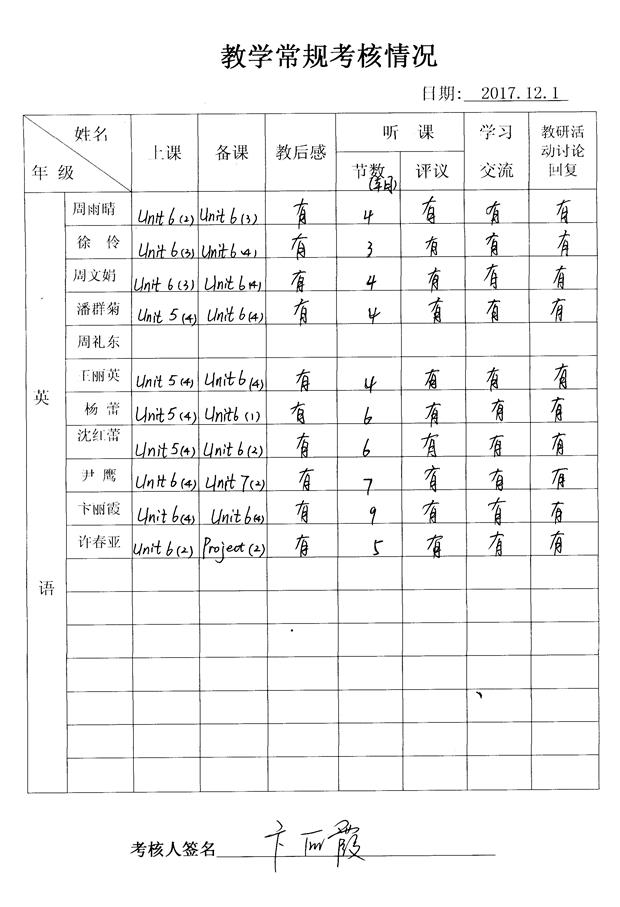 教学常规考核情况
日期: 2017.12.1
姓名 年级 上课 备课 教后感 听课 学习交流 教研活动讨论回复
节数 (本月) 评议
英语
周雨晴 Unit 6(2) Unit 6(3) 有 4 有 有 有
徐伶 Unit 6(3) Unit 6(4) 有 3 有 有 有
周文娟 Unit 6(3) Unit 6(4) 有 4 有 有 有
潘群菊 Unit 5(4) Unit 6(4) 有 4 有 有 有
周礼东
王丽英 Unit 5(4) Unit 6(4) 有 4 有 有 有
杨蕾 Unit 5(4) Unit 6(1) 有 6 有 有 有
沈红蕾 Unit 5(4) Unit 6(2) 有 6 有 有 有
尹鹰 Unit 6(4) Unit 7(2) 有 7 有 有 有
卞丽霞 Unit 6(4) Unit 6(4) 有 9 有 有 有
许春亚 Unit 6(2) Project(2) 有 5 有 有 有
考核人签名 卞丽霞